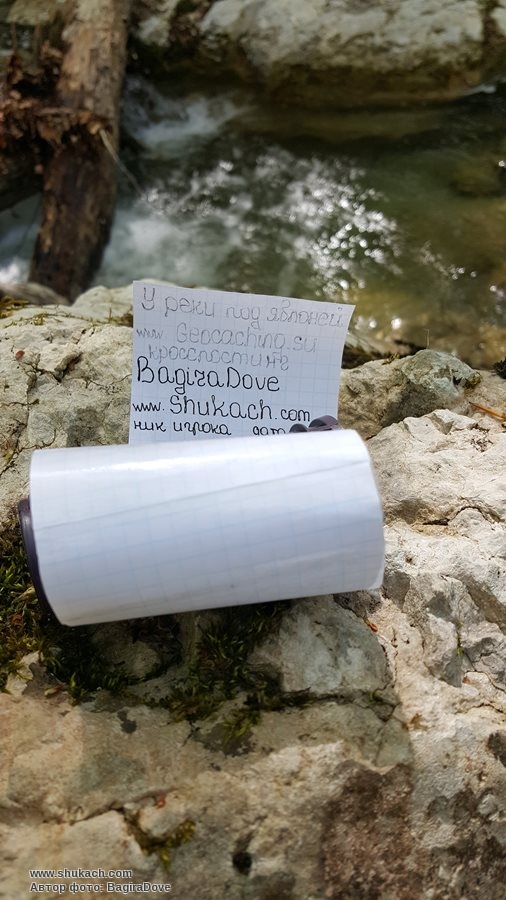 У реки под яблоней
www. Geocaching.su
кросспостинг
BagiraDove
www. Shukach.com
ник игрока дата
www.shukach.com
Автор фото: BagiraDove